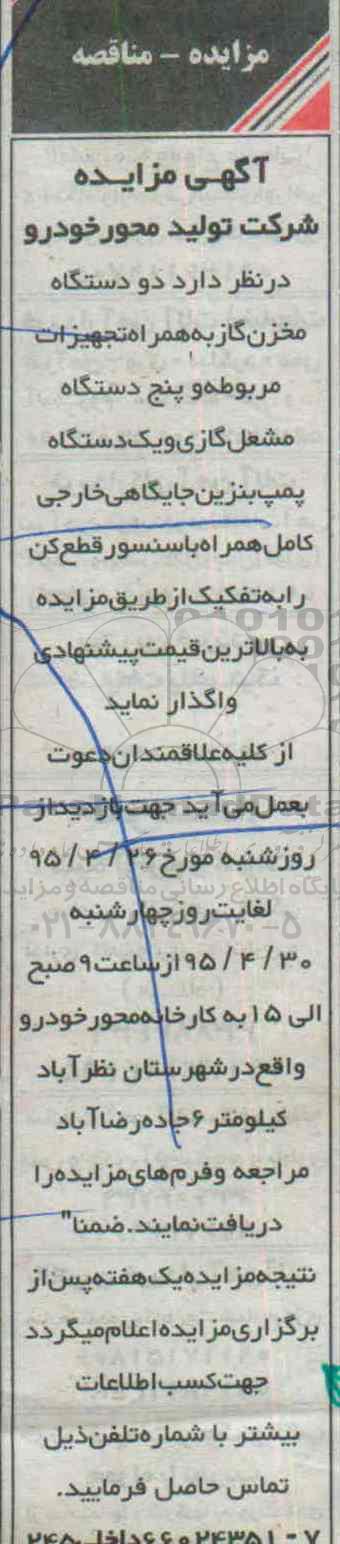 مزایده - مناقصه
آگهی مزایده
شرکت تولید محورخودرو
درنظر دارد دو دستگاه
مخزن گاز به همراه تجهیزات
مربوطه و پنج دستگاه
مشعل گازی و یک دستگاه
پمپ بنزین جایگاهی خارجی
کامل همراه باسنسور قطع کن
را به تفکیک از طریق مزایده
به بالاترین قیمت پیشنهادی
واگذار نماید
از کلیه علاقمندان دعوت
بعمل می آید جهت بازدید از
روز شنبه مورخ ۲۶ / ۴ / ۹۵
لغایت روز چهارشنبه
۳۰ / ۴ / ۹۵ از ساعت ۹ صبح
الی ۱۵ به کارخانه محورخودرو
واقع در شهرستان نظرآباد
کیلومتر ۶ جاده رضاآباد
مراجعه وفرم های مزایده را
دریافت نمایند. ضمنا"
نتیجه مزایده یک هفته پس از
برگزاری مزایده اعلام میگردد
جهت کسب اطلاعات
بیشتر با شماره تلفن ذیل
تماس حاصل فرمایید.
۷ - ۶۶۰۲۴۳۵۱ داخلی ۲۴۵
۰۲۱-۸۸۳۴۹۶۷۰-۵